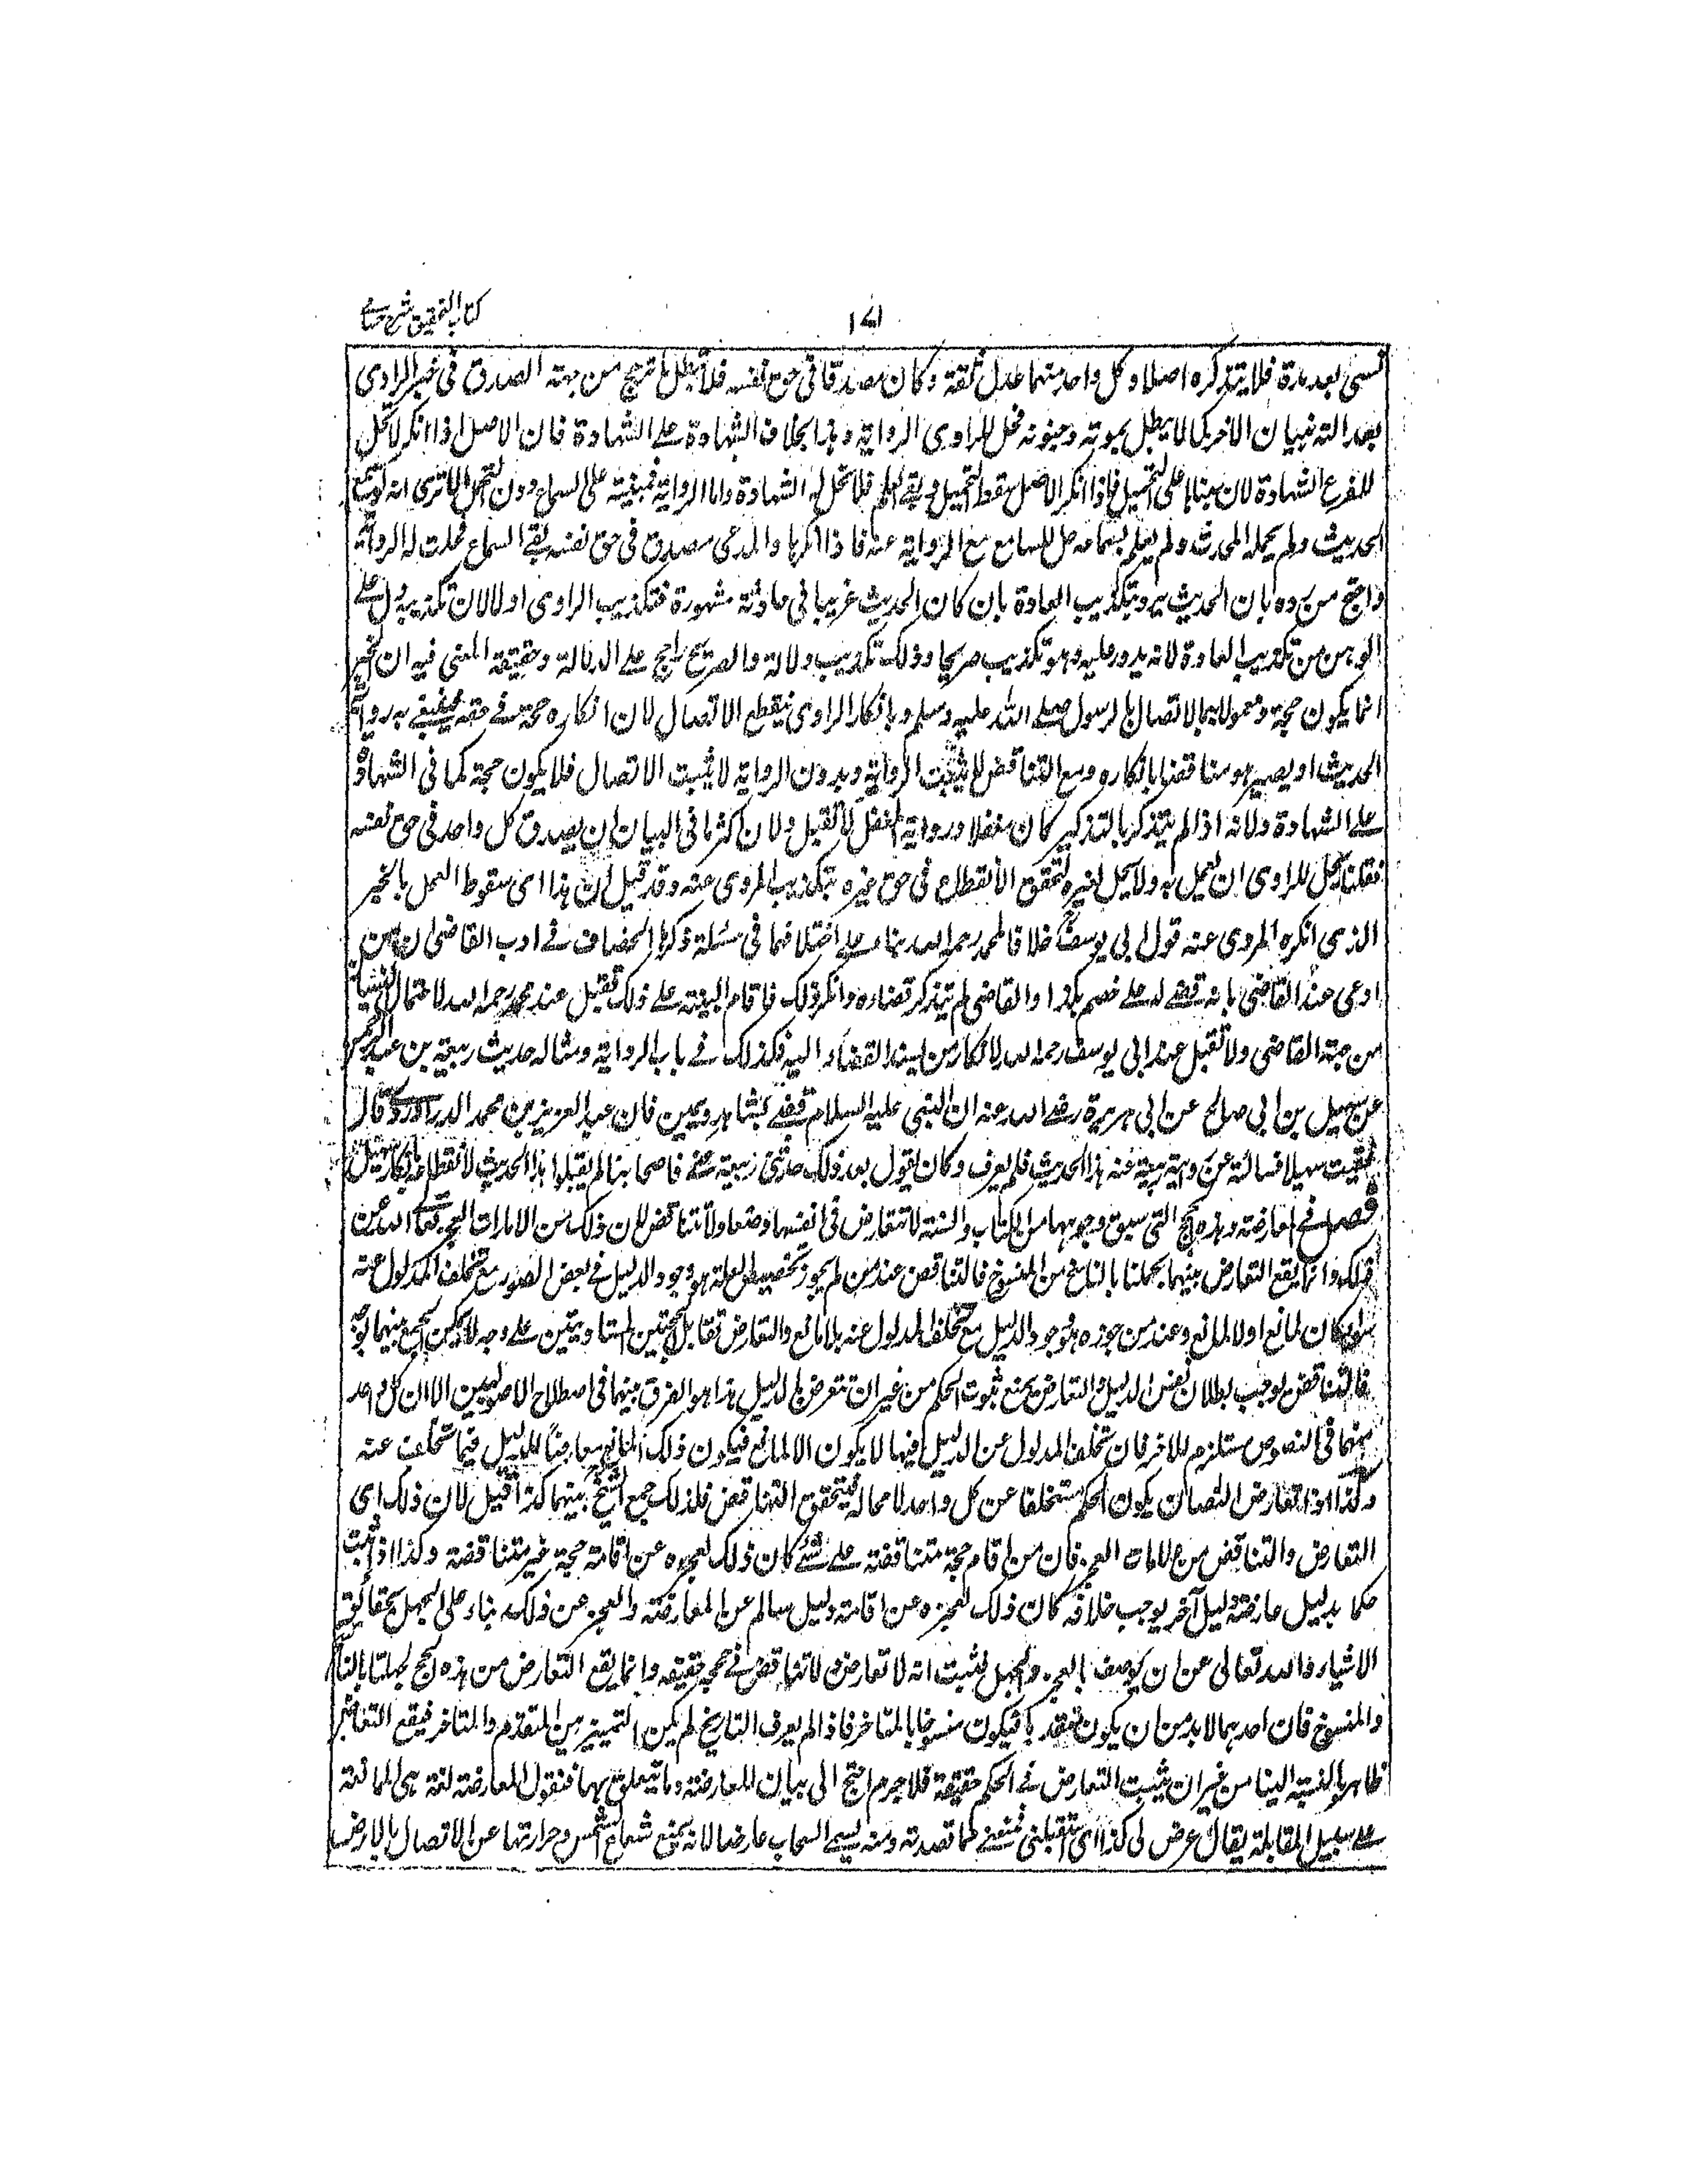 كتاب التحقيق شرح حسامي
١٧١
نسي بعد مدة فلا يتذكره اصلا وكل واحد منهما عدل ثقة وكان مصدقا في حق نفسه فلا يبطل ما ترجح من جهة الصدق في خبر الراوي
بعدالته نسيان الاخر كما لا يبطل بموته وجنونه فحل للراوي الرواية وهذا بخلاف الشهادة على الشهادة فان الاصل اذا انكر لا تحل
للفرع الشهادة لان مبناها على التحميل فاذا انكر الاصل سقط التحميل وبقي العلم فلا تحل له الشهادة واما الرواية فمبنية على السماع دون التحمل الا ترى انه لو سمع
الحديث ولم يحمله المحدث ولم يعلم بسماعه حل للسامع مع الرواية عنه فاذا انكرها والمدعي مصدق في حق نفسه بقي السماع فحلت له الرواية
واحتج من رده بان الحديث يرد بتكذيب العادة بان كان الحديث غريبا في حادثة مشهورة فتكذيب الراوي اولى لان تكذيبه ادل على
الوهن من تكذيب العادة لانه يدور عليه وهو تكذيب صريحا وذلك تكذيب دلالة والصريح راجح على الدلالة وحقيقة المعنى فيه ان الخبر
انما يكون حجة ومعمولا به بالاتصال بالرسول صلى الله عليه وسلم وبانكار الراوي ينقطع الاتصال لان انكاره حجة في حقه فينتفي به رواية
الحديث او يصير هو مناقضا بانكاره ومع التناقض لا يثبت الرواية وبدون الرواية لا يثبت الاتصال فلا يكون حجة كما في الشهادة
على الشهادة ولانه اذا لم يتذكر بالتذكير كان مغفلا ورواية المغفل لا تقبل ولان اكثر ما في البيان ان يصدق كل واحد في حق نفسه
فقلنا يحل للراوي ان يعمل به ولا يحل لغيره لتحقق الانقطاع في حق غيره بتكذيب المروي عنه وقد قيل ان هذا اى سقوط العمل بالخبر
الذي انكره المروي عنه قول ابي يوسف خلافا لمحمد رحمه الله بناء على اختلافهما في مسئلة ذكرها الخصاف في ادب القاضي ان من
ادعى عند القاضي بانه قضى له على خصم بكذا والقاضي لم يتذكر قضاءه وانكر ذلك فاقام البينة على ذلك تقبل عند محمد رحمه الله لاحتمال النسيان
من جهة القاضي ولا تقبل عند ابي يوسف رحمه الله لانكار من يسند القضاء اليه فكذلك في باب الرواية ومثاله حديث ربيعة بن عبد الرحمن
عن سهيل بن ابي صالح عن ابي هريرة رضي الله عنه ان النبي عليه السلام قضى بشاهد ويمين فان عبد العزيز بن محمد الدراوردي قال
لقيت سهيلا فسألته عن رواية ربيعة عنه هذا الحديث فلم يعرف وكان يقول بعد ذلك حدثني ربيعة عني فاصحابنا لم يقبلوا هذا الحديث لانقطاعه بانكار سهيل
فصل في المعارضة وهذه الحجج التي سبق وجوهها من الكتاب والسنة لا تتعارض في انفسها وضعا ولا تتناقض لان ذلك من الامارات العجز تعالى الله عن
ذلك وانما يقع التعارض بينهما بجهلنا بالناسخ من المنسوخ فالتناقض عند من لم يجوز تخصيص العلة هو وجود الدليل في بعض الصور مع تخلف المدلول عنه
سواء كان لمانع او لا لمانع وعند من جوزه هو وجود الدليل مع تخلف المدلول عنه بلا مانع والتعارض تقابل الحجتين المتساويتين على وجه لا يمكن الجمع بينهما بوجه
فالتناقض يوجب بطلان نفس الدليل والتعارض يمنع ثبوت الحكم من غير ان تتعرض بالدليل هذا هو الفرق بينهما في اصطلاح الاصوليين الا ان كل واحد
منهما في النصوص مستلزم للاخر فان تخلف المدلول عن الدليل فيها لا يكون الا لمانع فيكون ذلك المانع معارضا للدليل فيما تخلف عنه
وكذا اذا تعارض النصان يكون الحكم متخلفا عن كل واحد لا محالة فيتحقق التناقض فلذلك جمع الشيخ بينهما كذا قيل لان ذلك اى
التعارض والتناقض من علامات العجز فان من اقام حجة متناقضة على شئ كان ذلك لعجزه عن اقامة حجة غير متناقضة وكذا اذا اثبت
حكما بدليل عارضه دليل آخر يوجب خلافه كان ذلك لعجزه عن اقامة دليل سالم عن المعارضة والعجز عن ذلك بناء على الجهل بحقائق
الاشياء والله تعالى عن ان يوصف بالعجز والجهل يثبت انه لا تعارض ولا تناقض في حججه حقيقة وانما يقع التعارض من هذه الحجج لجهلنا بالناسخ
والمنسوخ فان احدهما لا بد من ان يكون متقدما فيكون منسوخا بالمتاخر فاذا لم يعرف التاريخ لم يكن التمييز بين المتقدم والمتاخر فيقع التعارض
ظاهرا بالنسبة الينا من غير ان يثبت التعارض في الحكم حقيقة فلا جرم احتج الى بيان المعارضة وما يتعلق بها فنقول المعارضة لغة هي الممانعة
على سبيل المقابلة يقال عرض لي كذا اى استقبلني فمنعني كما قصدته ومنه يسمى السحاب عارضا لانه يمنع شعاع الشمس وحرارتها عن الاتصال بالارض